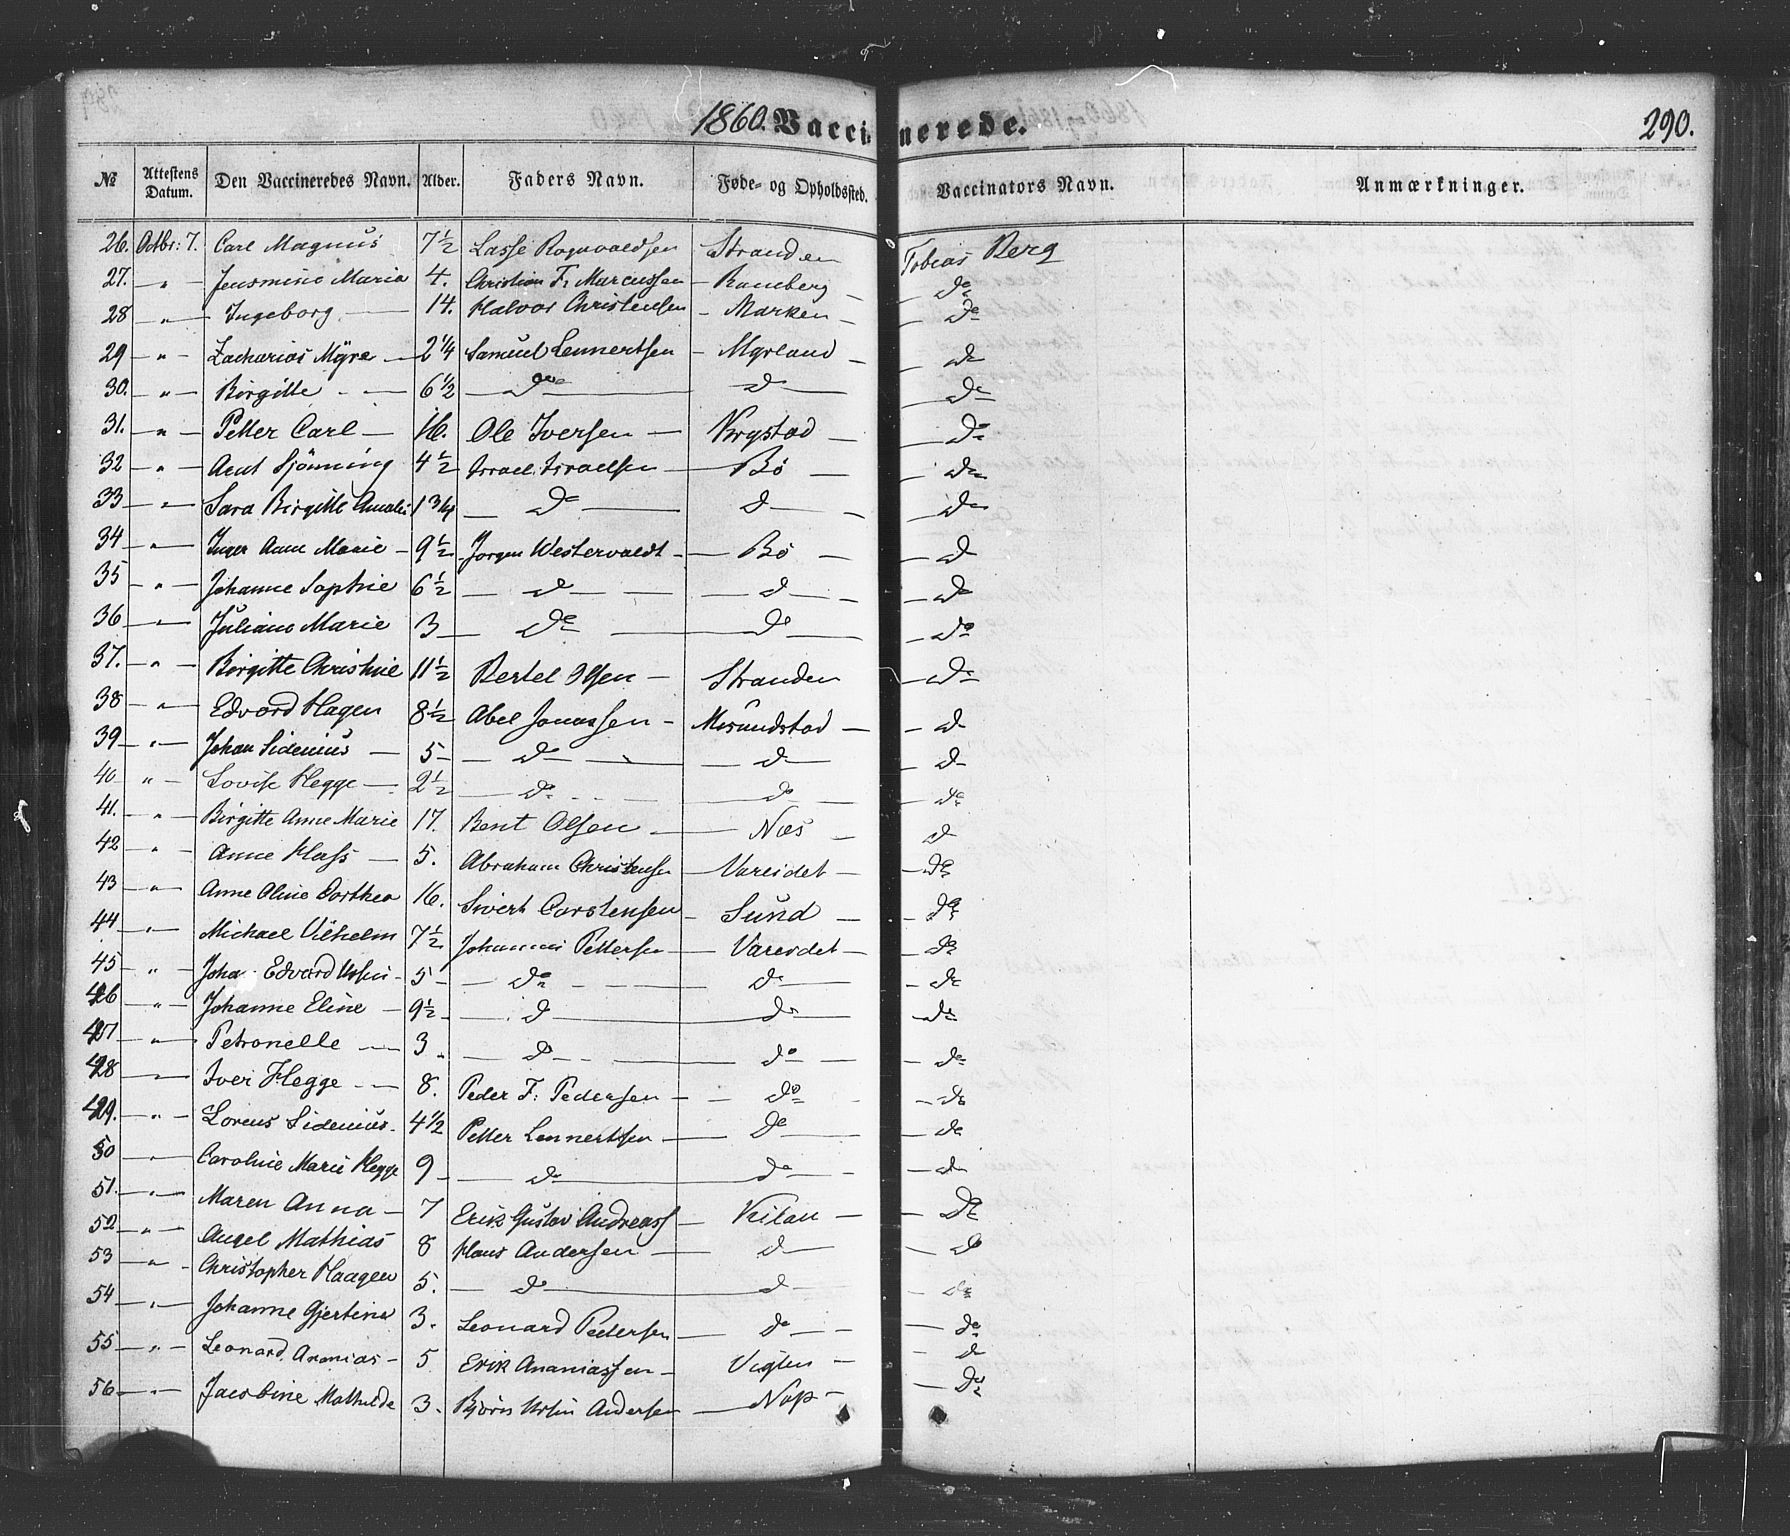 1860. Vaccinerede. 290.
№ Attestens Datum. Den Vaccineredes Navn. Alder. Faders Navn. Føde- og Opholdssted. Vaccinators Navn. Anmærkninger.
26. Octbr: 7. Carl Magnus 7 1/2 Lasse Rognvaldsen Stranden Tobias Berg
27. — " — Jensmine Maria 4. Christian F. Marcussen — Ramberg — — do
28 — " — Ingeborg — 14. Halvor Christensen — Marken — — do
29 — " — Zacharias Myre — 2 1/4 Samuel Lennertsen — Myrland — — do
30. — " — Birgitte — 6 1/2 — do — do — — do
31. — " — Petter Carl — 16. Ole Iversen — Nygstad — — do
32 — " — Arnt Sjönning 4 1/2 Israel Israelsen — Bö — — do
33 — " — Sara Birgitte Amalie 1 3/4 — do — do — — do
34 — " — Inger Anne Marie — 9 1/2 Jorgen Westervaldt — Bö — — do
35 — " — Johanne Sophie 6 1/2 — do — — do — — do
36 — " — Juliane Marie 3 — do — do — — do
37. — " — Birgitte Christine 11 1/2 Bertel Olsen — Stranden — do
38 — " — Edvard Hagen 8 1/2 Abel Jonassen — Mosundstad — — do
39 — " — Johan Sidenius — 5 — do — do — — do
40 — " — Lovise Hegge — 2 1/2 — do — do — — do
41. — " — Birgitte Anne Marie 17. Bent Olsen — Næs — do
42 — " — Anne Hass — 5. Abraham Christensen — Vareidet — — do
43 — " — Anne Oline Dorthea 16. Sivert Carstensen — Sund — — do
44 — " — Michael Vilhelm 7 1/2 Johannes Pettersen — Vareidet — — do
45 — " — Joha. Edvard Ursin — 5 — do — do — — do
46 — " — Johanne Eline — 9 1/2 — do — do — — do
47 — " — Petronelle — 3 — do — do — — do
48 — Iver Hegge — 8. Peder F. Pedersen — — do — — do
49. — " — Lorens Sidenius. 4 1/2 Petter Lennertsen — do — — do
50 — " — Caroline Marie Hegge 9 — do — do — — do
51. — " — Maren Anna — 7 Erik Gustav Andreass — Veilan — — do
52 — " — Angel Mathias 8 Hans Andersen — do — — do
53 — " — Christopher Haagen 5. — do — do — — do
54 — " — Johanne Gjertine 3. Leonard Pedersen — do — — do
55 — " — Leonard Ananias — 5 Erik Ananiassen — Vigten — — do
56 — " — Jacobine Mathilde 3. Björn Ursin Andersen — Nap — — do